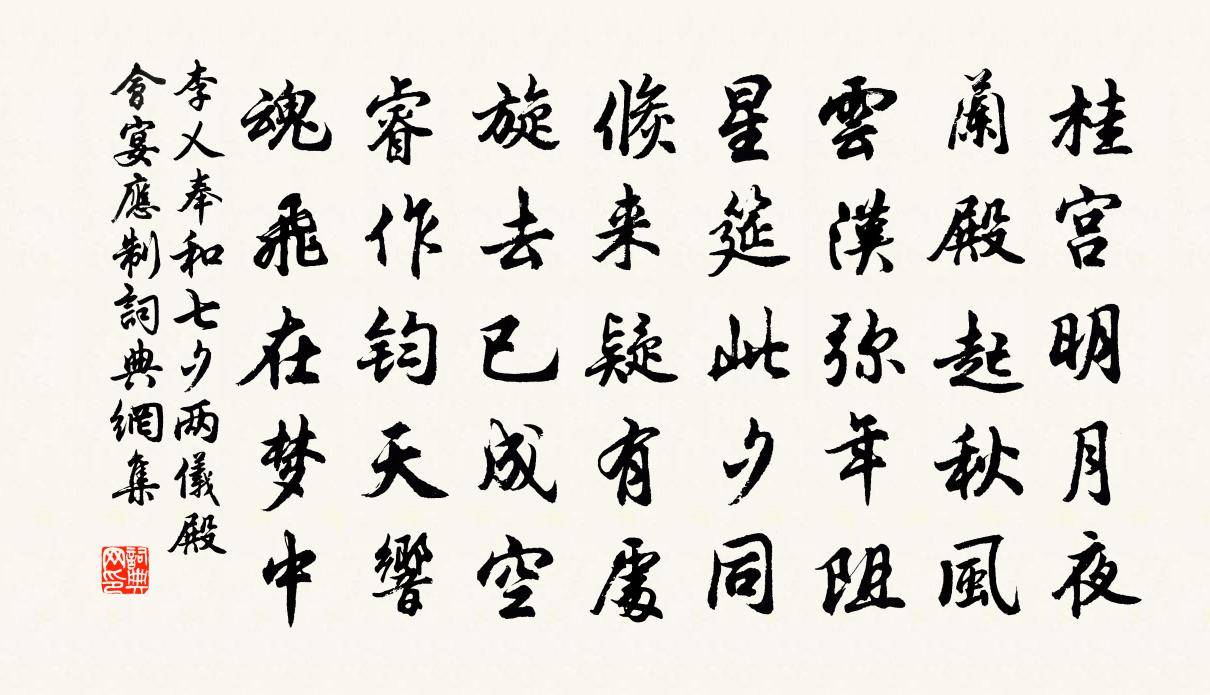 桂宮明月夜
蘭殿起秋風
雲漢弥年阻
星筵此夕同
倐来疑有處
旋去已成空
睿作鈞天響
魂飛在梦中
李乂奉和七夕两儀殿
會宴應制詞典網集
詞典
网印